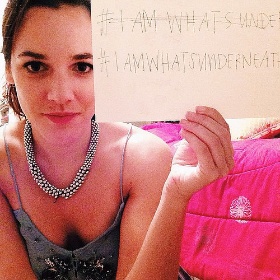 #I AM WHATSUNDE
#IAMWHATSUNDERNEAT